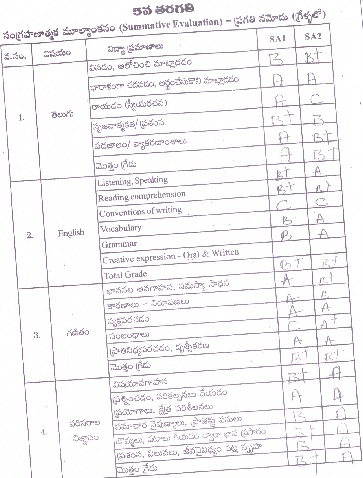 5వ తరగతి
సంగ్రహణాత్మక మూల్యాంకనం (Summative Evaluation) – ప్రగతి నమోదు (గ్రేడ్లలో)
వ.సం. విషయం విద్యా ప్రమాణాలు SA1 SA2
వినడం, ఆలోచించి మాట్లాడడం B B+
ధారాళంగా చదవడం, అర్థంచేసుకొని మాట్లాడడం A A
రాయడం (స్వీయరచన) A C
1. తెలుగు
సృజనాత్మకత/ప్రశంస B+ B
పదజాలం/ వ్యాకరణాంశాలు A B
మొత్తం గ్రేడు A B+
Listening, Speaking B+ A
Reading comprehension B+
Conventions of writing C C
2. English Vocabulary B A
Grammar B A
Creative expression - Oral & Written
Total Grade B+ B+
భావనల అవగాహన, సమస్యా సాధన A
కారణాలు - నిరూపణలు B
వ్యక్తపరచడం A
3. గణితం
సంబంధాలు
ప్రాతినిధ్యపరచడం, దృశ్యీకరణ A A
మొత్తం గ్రేడు B+ B+
విషయావగాహన B+ A
ప్రశ్నించడం, పరికల్పనలు చేయడం A A
ప్రయోగాలు, క్షేత్ర పరిశీలనలు
4. పరిసరాల విజ్ఞానం
సమాచార నైపుణ్యాలు, ప్రాజెక్టు పనులు
ప్రశంస, విలువలు, జీవవైవిధ్యం పట్ల స్పృహ
మొత్తం గ్రేడు B+ A